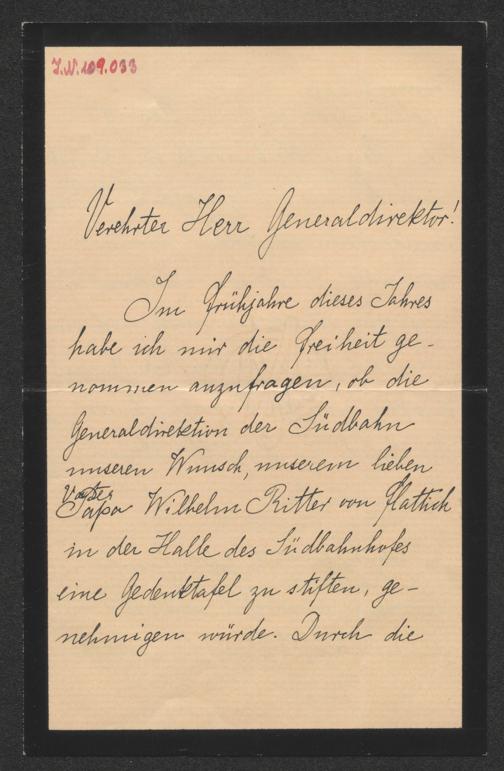 J.N. 109.033
Verehrter Herr Generaldirektor!
Im Frühjahre dieses Jahres
habe ich mir die Freiheit ge-
nommen anzufragen, ob die
Generaldirektion der Südbahn
unseren Wunsch, unserem lieben
Vater
Papa Wilhelm Ritter von Flattich
in der Halle des Südbahnhofes
eine Gedenktafel zu stiften, ge-
nehmigen würde. Durch die